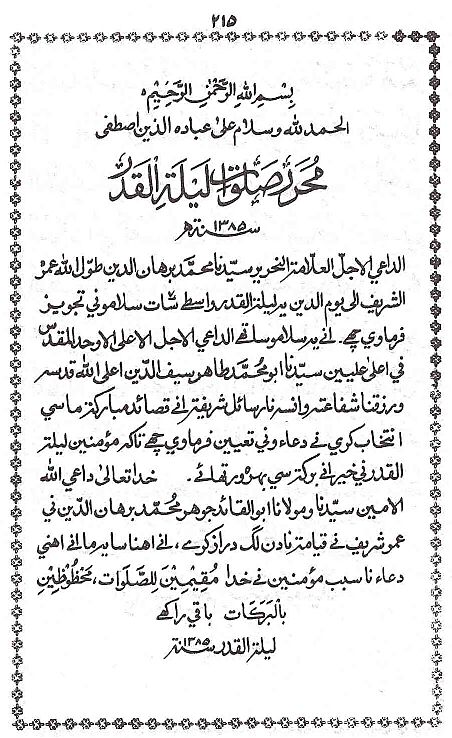 ۲۱۵
بِسْمِ اللهِ الرَّحْمٰنِ الرَّحِيْمِ
الحمد لله وسلام على عباده الذين اصطفى
مُحَرَّر صَلَوَات لَيلَةِ القَدْر
سنة ۱۳۸۵ھ
الداعي الاجل العلامة النحرير سيدنا محمد برهان الدين طوّل الله عمره
الشريف الى يوم الدين یہ ليلة القدر واسطے شات سلامو ني تجويز
فرماوي چھے۔ انے یہ سلامو ساتھے الداعي الاجل الاعلى الاوحد المقدّس
في اعلى عليين سيدنا ابو محمد طاهر سيف الدّين اعلى الله قدسه
ورزقنا شفاعته وانسه نا رسائل شريفة انے قصائد مباركة ما سي
انتخاب كري نے دعاء وني تعيين فرماوي چھے تاكه مؤمنين ليلة
القدر ني خير انے بركة سي بهره ور تھائے۔ خدا تعالى داعي الله
الامين سيدنا ومولانا ابو القائد جوهر محمد برهان الدّين ني
عمر شريف نے قيامة نا دن لگ دراز كرے، انے اهنا سايه ما انے اهني
دعاء نا سبب مؤمنين نے خدا مُقِيْمِيْنَ لِلصَّلَوات، مَحْظُوظِيْنَ
بِالْبَرَكَات باقي راكھے
ليلة القدر سنة ۱۳۸۵